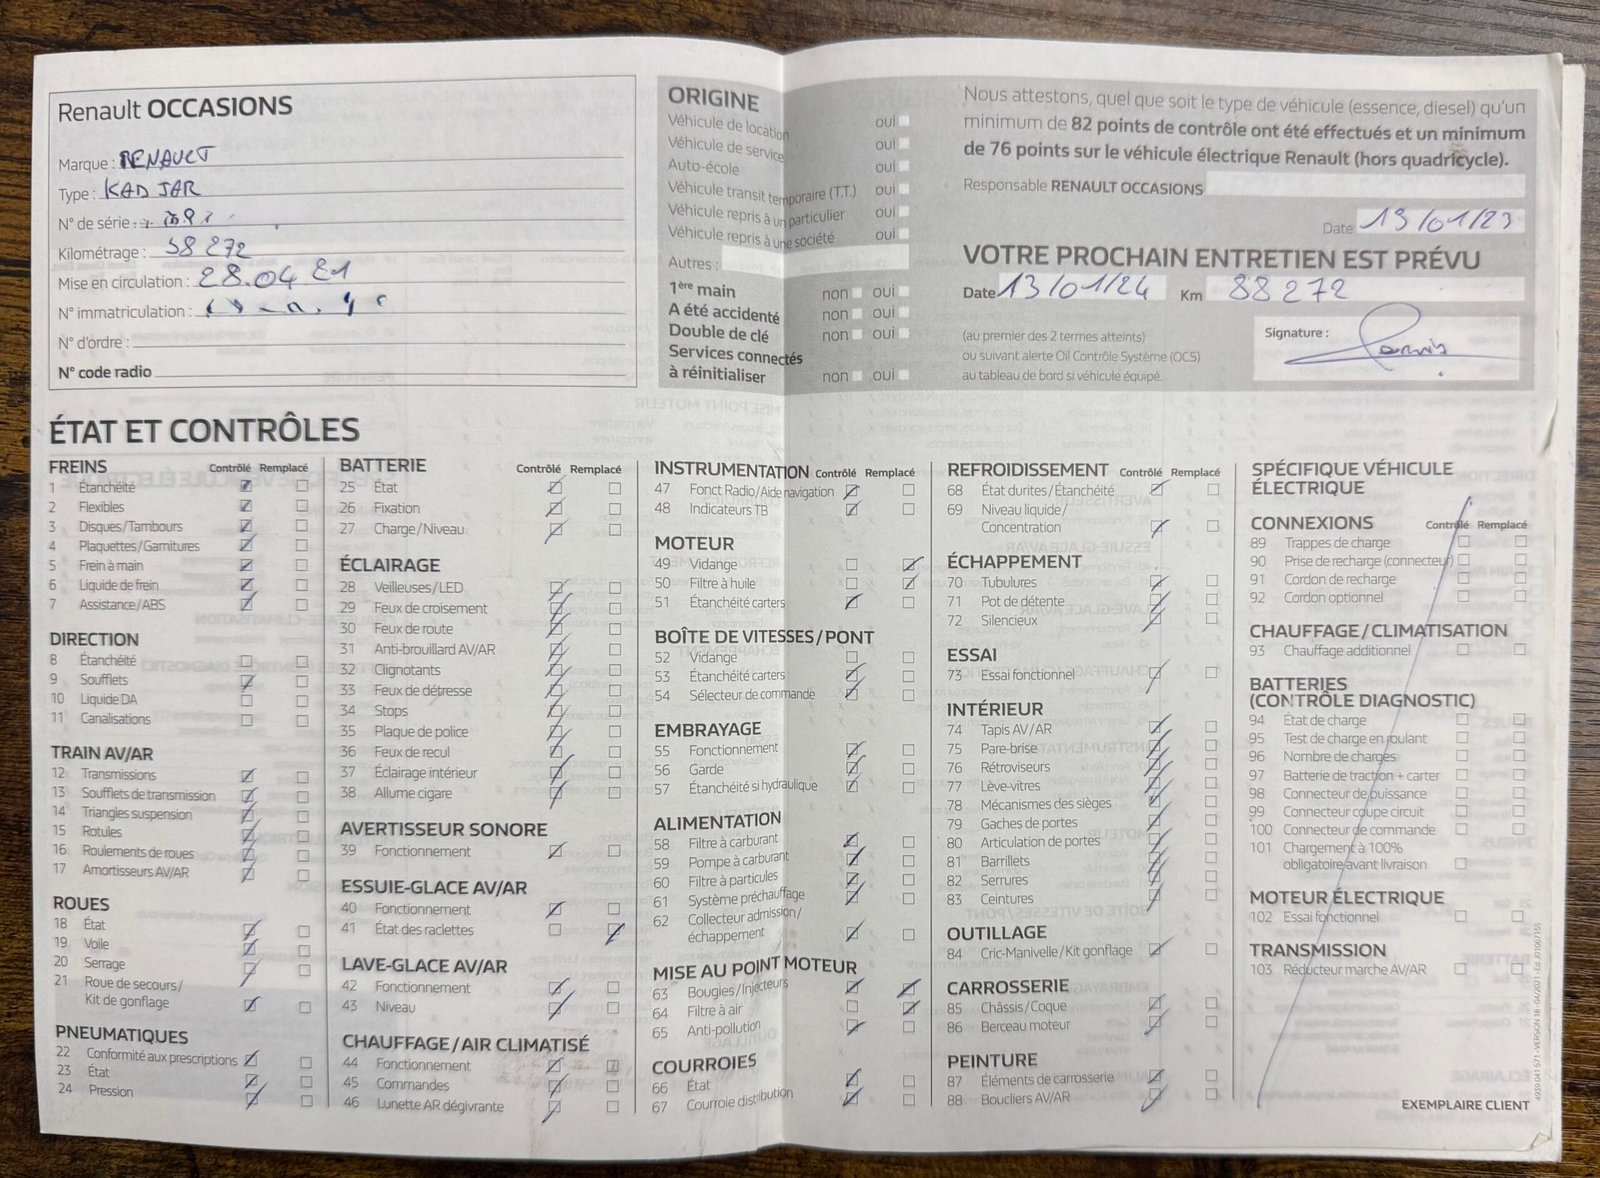 Renault OCCASIONS
Marque : RENAULT
Type : KADJAR
N° de série :
Kilométrage : 58 272
Mise en circulation : 28.04 21
N° immatriculation :
N° d'ordre :
N° code radio
ORIGINE
Véhicule de location oui
Véhicule de service oui
Auto-école oui
Véhicule transit temporaire (T.T.) oui
Véhicule repris à un particulier oui
Véhicule repris à une société oui
Autres :
1ère main non oui
A été accidenté non oui
Double de clé non oui
Services connectés
à réinitialiser non oui
Nous attestons, quel que soit le type de véhicule (essence, diesel) qu'un
minimum de 82 points de contrôle ont été effectués et un minimum
de 76 points sur le véhicule électrique Renault (hors quadricycle).
Responsable RENAULT OCCASIONS
Date 13/01/23
VOTRE PROCHAIN ENTRETIEN EST PRÉVU
Date 13/01/24 Km 88 272
(au premier des 2 termes atteints)
ou suivant alerte Oil Contrôle Système (OCS)
au tableau de bord si véhicule équipé.
Signature :
ÉTAT ET CONTRÔLES
FREINS Contrôlé Remplacé
1 Étanchéité
2 Flexibles
3 Disques/Tambours
4 Plaquettes/Garnitures
5 Frein à main
6 Liquide de frein
7 Assistance/ABS
DIRECTION
8 Étanchéité
9 Soufflets
10 Liquide DA
11 Canalisations
TRAIN AV/AR
12 Transmissions
13 Soufflets de transmission
14 Triangles suspension
15 Rotules
16 Roulements de roues
17 Amortisseurs AV/AR
ROUES
18 État
19 Voile
20 Serrage
21 Roue de secours/
Kit de gonflage
PNEUMATIQUES
22 Conformité aux prescriptions
23 État
24 Pression
BATTERIE Contrôlé Remplacé
25 État
26 Fixation
27 Charge/Niveau
ÉCLAIRAGE
28 Veilleuses/LED
29 Feux de croisement
30 Feux de route
31 Anti-brouillard AV/AR
32 Clignotants
33 Feux de détresse
34 Stops
35 Plaque de police
36 Feux de recul
37 Éclairage intérieur
38 Allume cigare
AVERTISSEUR SONORE
39 Fonctionnement
ESSUIE-GLACE AV/AR
40 Fonctionnement
41 État des raclettes
LAVE-GLACE AV/AR
42 Fonctionnement
43 Niveau
CHAUFFAGE/AIR CLIMATISÉ
44 Fonctionnement
45 Commandes
46 Lunette AR dégivrante
INSTRUMENTATION Contrôlé Remplacé
47 Fonct Radio/Aide navigation
48 Indicateurs TB
MOTEUR
49 Vidange
50 Filtre à huile
51 Étanchéité carters
BOÎTE DE VITESSES/PONT
52 Vidange
53 Étanchéité carters
54 Sélecteur de commande
EMBRAYAGE
55 Fonctionnement
56 Garde
57 Étanchéité si hydraulique
ALIMENTATION
58 Filtre à carburant
59 Pompe à carburant
60 Filtre à particules
61 Système préchauffage
62 Collecteur admission/
échappement
MISE AU POINT MOTEUR
63 Bougies/Injecteurs
64 Filtre à air
65 Anti-pollution
COURROIES
66 État
67 Courroie distribution
REFROIDISSEMENT Contrôlé Remplacé
68 État durites/Étanchéité
69 Niveau liquide/
Concentration
ÉCHAPPEMENT
70 Tubulures
71 Pot de détente
72 Silencieux
ESSAI
73 Essai fonctionnel
INTÉRIEUR
74 Tapis AV/AR
75 Pare-brise
76 Rétroviseurs
77 Lève-vitres
78 Mécanismes des sièges
79 Gaches de portes
80 Articulation de portes
81 Barrillets
82 Serrures
83 Ceintures
OUTILLAGE
84 Cric-Manivelle/Kit gonflage
CARROSSERIE
85 Châssis/Coque
86 Berceau moteur
PEINTURE
87 Éléments de carrosserie
88 Boucliers AV/AR
SPÉCIFIQUE VÉHICULE
ÉLECTRIQUE
CONNEXIONS Contrôlé Remplacé
89 Trappes de charge
90 Prise de recharge (connecteur)
91 Cordon de recharge
92 Cordon optionnel
CHAUFFAGE/CLIMATISATION
93 Chauffage additionnel
BATTERIES
(CONTRÔLE DIAGNOSTIC)
94 État de charge
95 Test de charge en roulant
96 Nombre de charges
97 Batterie de traction + carter
98 Connecteur de puissance
99 Connecteur coupe circuit
100 Connecteur de commande
101 Chargement à 100%
obligatoire avant livraison
MOTEUR ÉLECTRIQUE
102 Essai fonctionnel
TRANSMISSION
103 Réducteur marche AV/AR
EXEMPLAIRE CLIENT